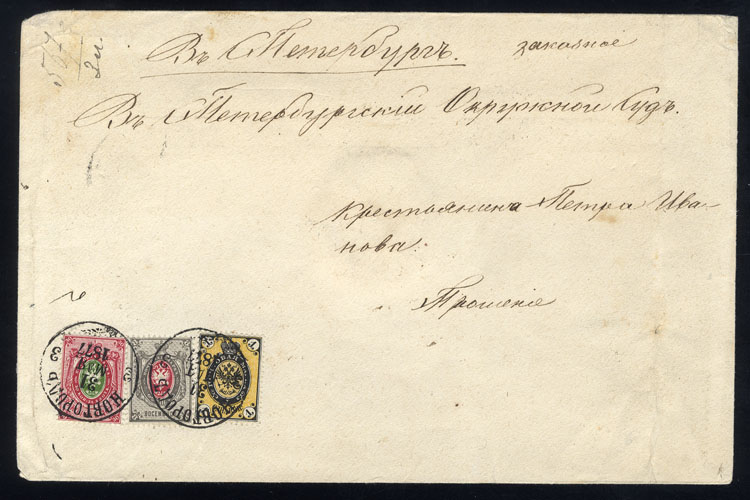 Въ Петербургъ.
заказное
2 л.
Въ Петербургскій Окружной Судъ.
Крестьянина Петра Ива-
нова.
Прошеніе
НОВГОРОДЪ
31
МАЯ
1877
3
НОВГОРОДЪ
31
1
1